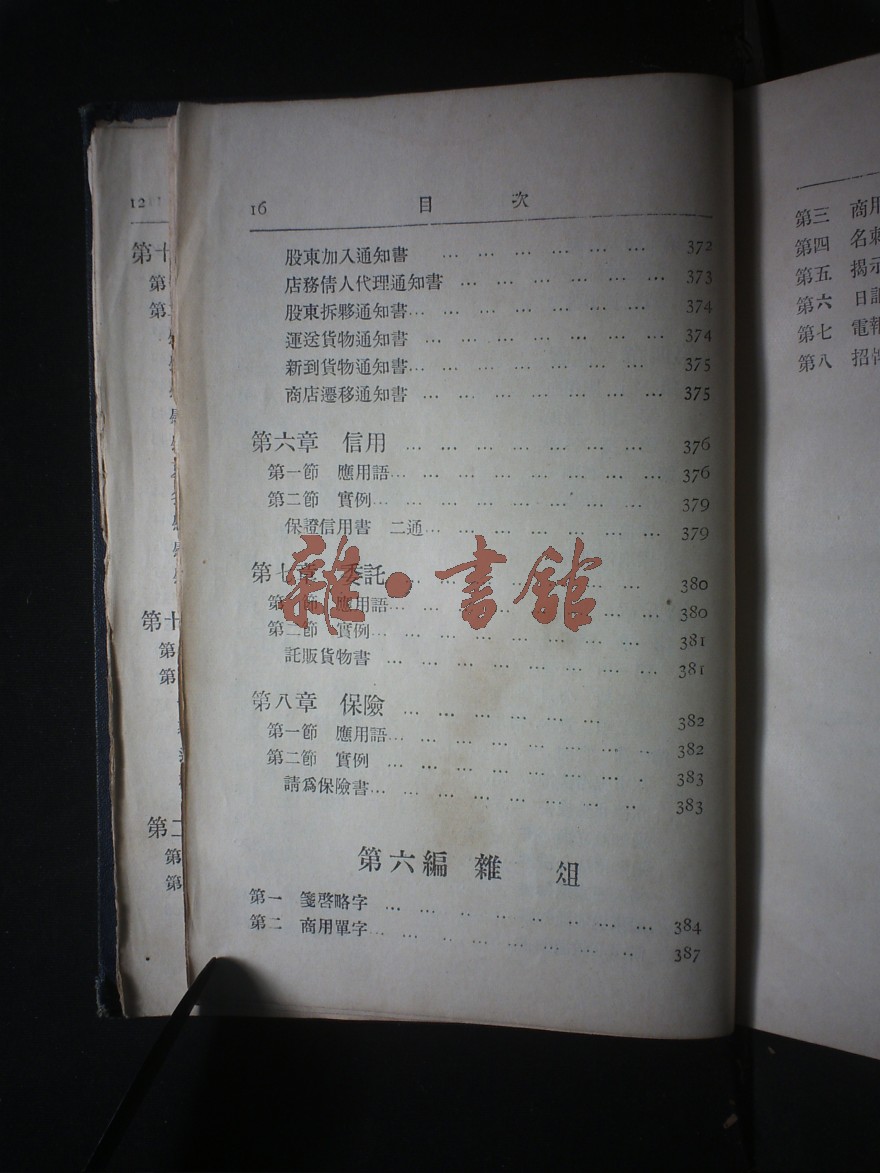 16 目 次
股東加入通知書 … … … … … … 372
店務倩人代理通知書 … … … … … … 373
股東拆夥通知書… … … … … … … 374
運送貨物通知書 … … … … … … … 374
新到貨物通知書… … … … … … … 375
商店遷移通知書 … … … … … … … 375
第六章 信用 … … … … … … … 376
第一節 應用語… … … … … … … … 376
第二節 實例… … … … … … … … 379
保證信用書 二通… … … … … … … 379
第七章 委託 … … … … … … … 380
第一節 應用語… … … … … … … … 380
第二節 實例… … … … … … … … 381
託販貨物書 … … … … … … … … 381
第八章 保險 … … … … … … 382
第一節 應用語… … … … … … … … 382
第二節 實例 … … … … … … … 383
請爲保險書… … … … … … … 383
第六編 雜 俎
第一 箋啓略字 … … … … … … … … 384
第二 商用單字… … … … … … … 387
雜·書館
12
第十
第
第
第十
第
第
第二
第
第
第三 商用
第四 名刺
第五 揭示
第六 日記
第七 電報
第八 招牌